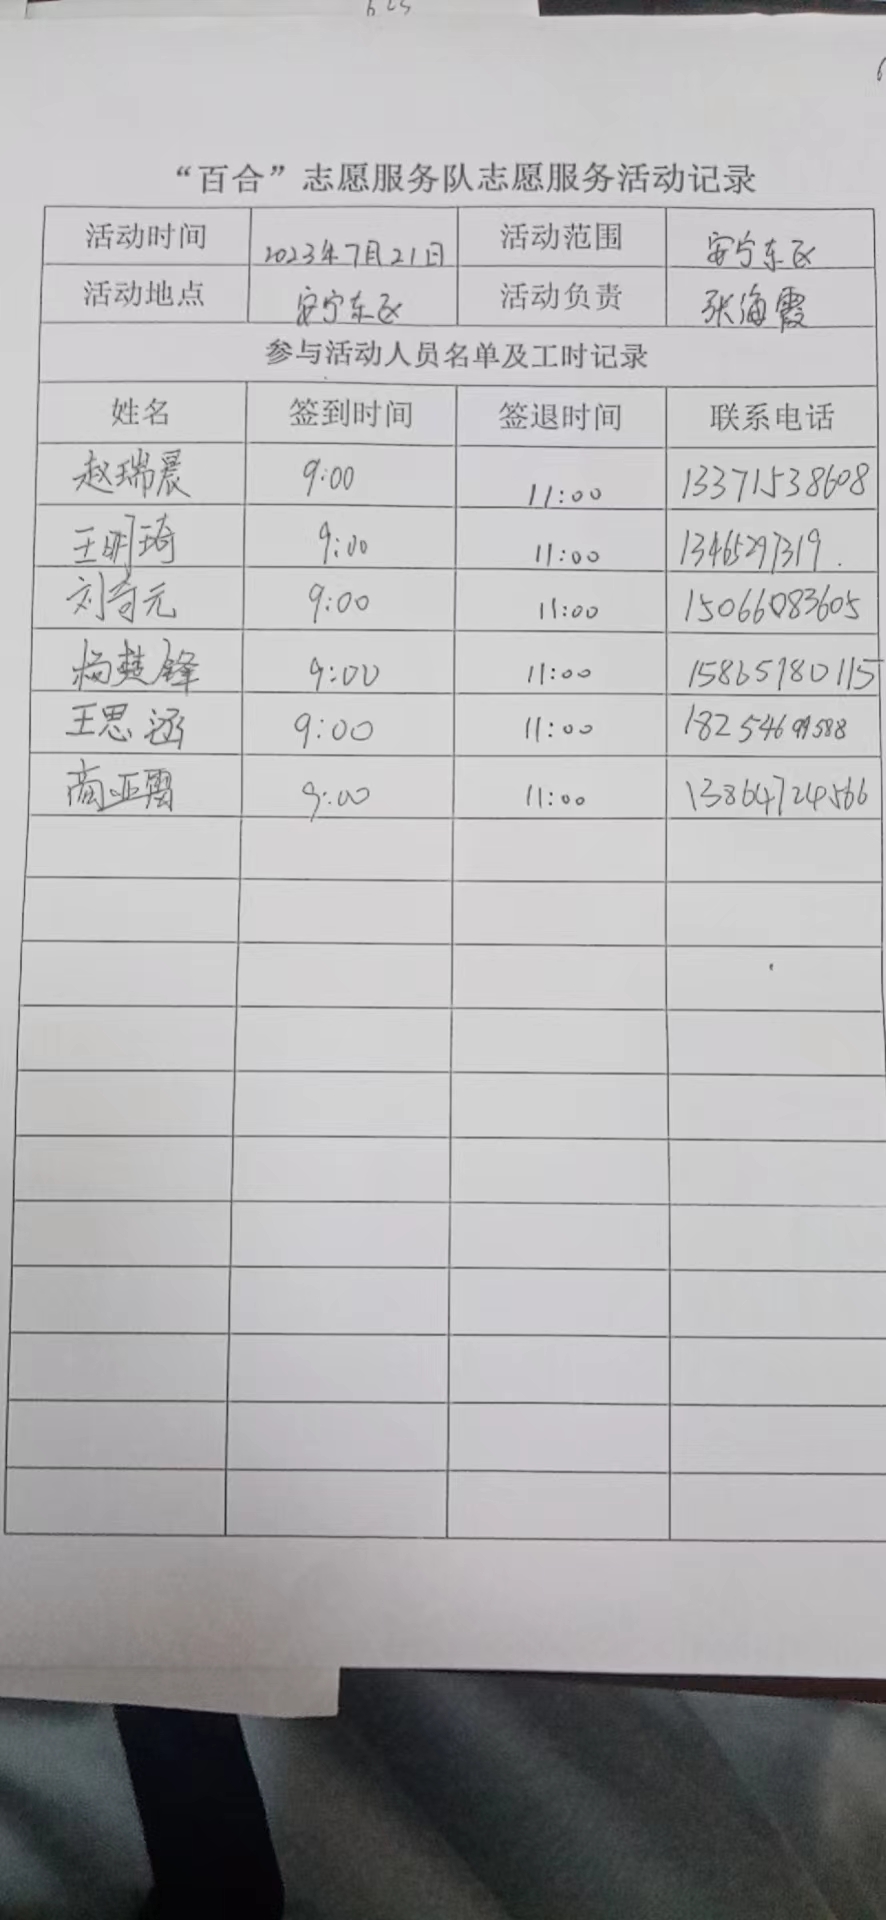 “百合”志愿服务队志愿服务活动记录
活动时间 2023年7月21日 活动范围 安宁东区
活动地点 安宁东区 活动负责 张海霞
参与活动人员名单及工时记录
姓名 签到时间 签退时间 联系电话
赵瑞晨 9:00 11:00 13371538608
王明琦 9:00 11:00 13465297319
刘奇元 9:00 11:00 15066083605
杨楚锋 9:00 11:00 15865980115
王思涵 9:00 11:00 18254699588
商亚雷 9:00 11:00 13864724566